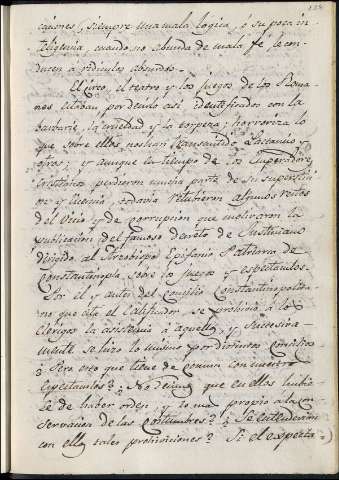 caciones, siempre una mala logica, o su poca in
teligencia, cuando no abunda de mala fé, le con
ducen á ridiculos absurdos.
El circo, el teatro y los juegos de los Roma
nos estaban, por decirlo asi, identificados con la
barbarie, la crueldad y la torpeza; horroriza lo
que sobre ellos nos han transmitido Lactancio y
otros; y aunque en tiempo de los Emperadores
cristianos perdieron mucha parte de su supersticion
y licencia, todavia retubieron algunos restos
del vicio y de corrupcion que motivaron la
publicacion del famoso decreto de Justiniano
dirigido al Arzobispo Epifanio Patriarca de
Constantinopla sobre los juegos y espectaculos.
Por el y autos del concilio Constantinopolita
no que cita el Calificador se prohibió á los
clerigos la asistencia á aquellos, y sucesiva-
mente se hizo lo mismo por distintos concilios
¿Pero esto que tiene de comun con nuestros
espectaculos? ¿No decimos que en ellos hubie
se de haber orden, y tono propio a la con
servacion de las costumbres? ¿Se entenderian
con ellos tales prohiviciones? Si el experto